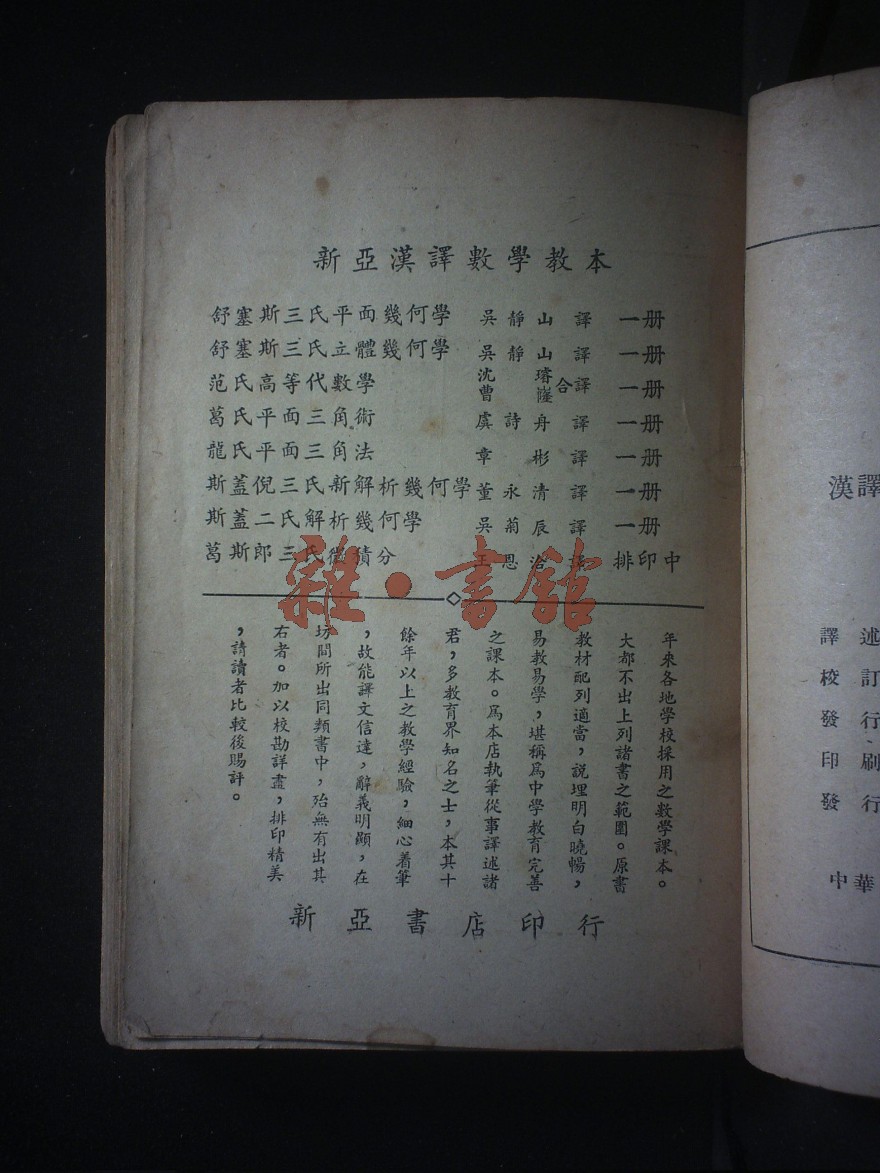 新亞漢譯數學教本
舒塞斯三氏平面幾何學 吳靜山 譯 一册
舒塞斯三氏立體幾何學 吳靜山 譯 一册
范氏高等代數學 沈璿 曹 合譯 一册
葛氏平面三角術 虞詩舟 譯 一册
龍氏平面三角法 章彬 譯 一册
斯蓋倪三氏新解析幾何學 董永清 譯 一册
斯蓋二氏解析幾何學 吳菊辰 譯 一册
葛斯郎三氏微積分 王恩洽 譯 排印中
年來各地學校採用之數學課本。
大都不出上列諸書之範圍。原書
教材配列適當，說理明白曉暢，
易教易學，堪稱爲中學教育完善
之課本。爲本店執筆從事譯述諸
君，多教育界知名之士，本其十
餘年以上之教學經驗，細心着筆
，故能譯文信達，辭義明顯，在
坊間所出同類書中，殆無有出其
右者。加以校勘詳盡，排印精美
，請讀者比較後賜評。
新亞書店印行
雜·書館
漢譯
譯述
校訂
發行
印刷
發行
中華